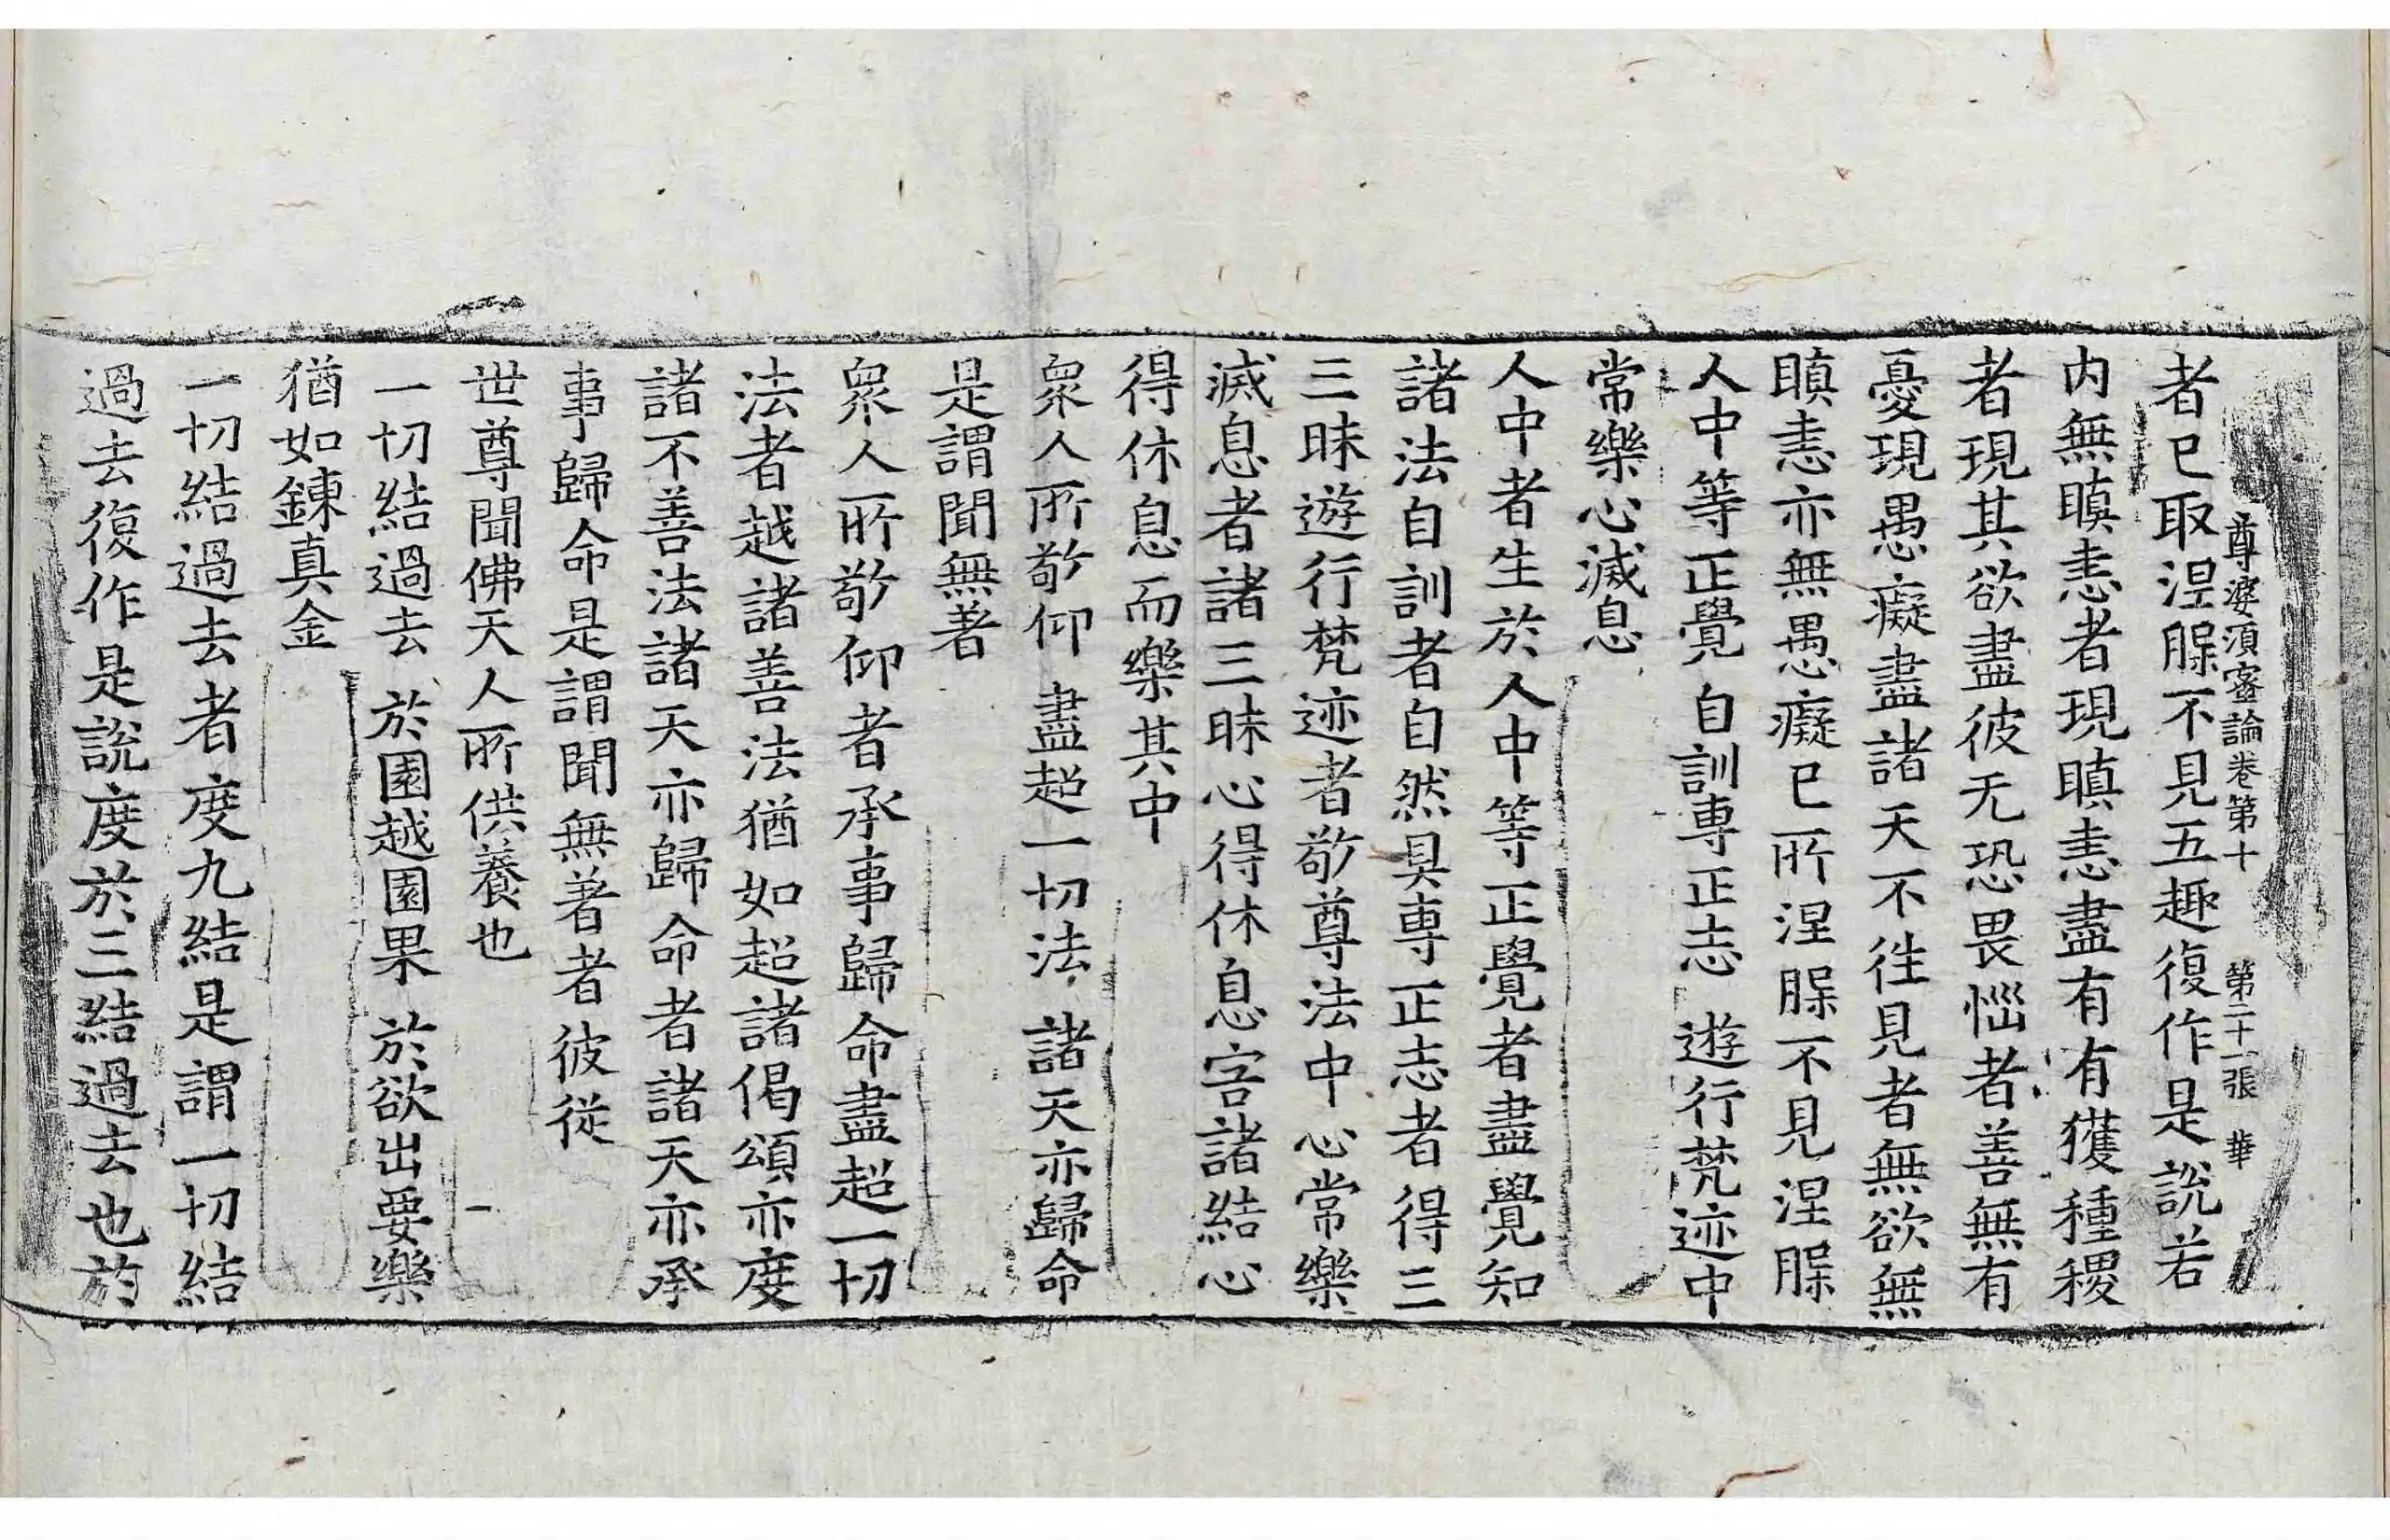 尊婆須蜜論卷第十 第二十一張 華
者已取涅槃不見五趣復作是說若
内無瞋恚者現瞋恚盡有有獲種稷
者現其欲盡彼无恐畏惱者善無有
憂現愚癡盡諸天不往見者無欲無
瞋恚亦無愚癡已所涅槃不見涅槃
人中等正覺 自訓專正志 遊行梵迹中
常樂心滅息
人中者生於人中等正覺者盡覺知
諸法自訓者自然具專正志者得三
三昧遊行梵迹者敬尊法中心常樂
滅息者諸三昧心得休息害諸結心
得休息而樂其中
衆人所敬仰 盡超一切法 諸天亦歸命
是謂聞無著
衆人所敬仰者承事歸命盡超一切
法者越諸善法猶如超諸偈頌亦度
諸不善法諸天亦歸命者諸天亦承
事歸命是謂聞無著者彼從
世尊聞佛天人所供養也
一切結過去 於園越園果 於欲出要樂
猶如鍊真金
一切結過去者度九結是謂一切結
過去復作是說度於三結過去也於